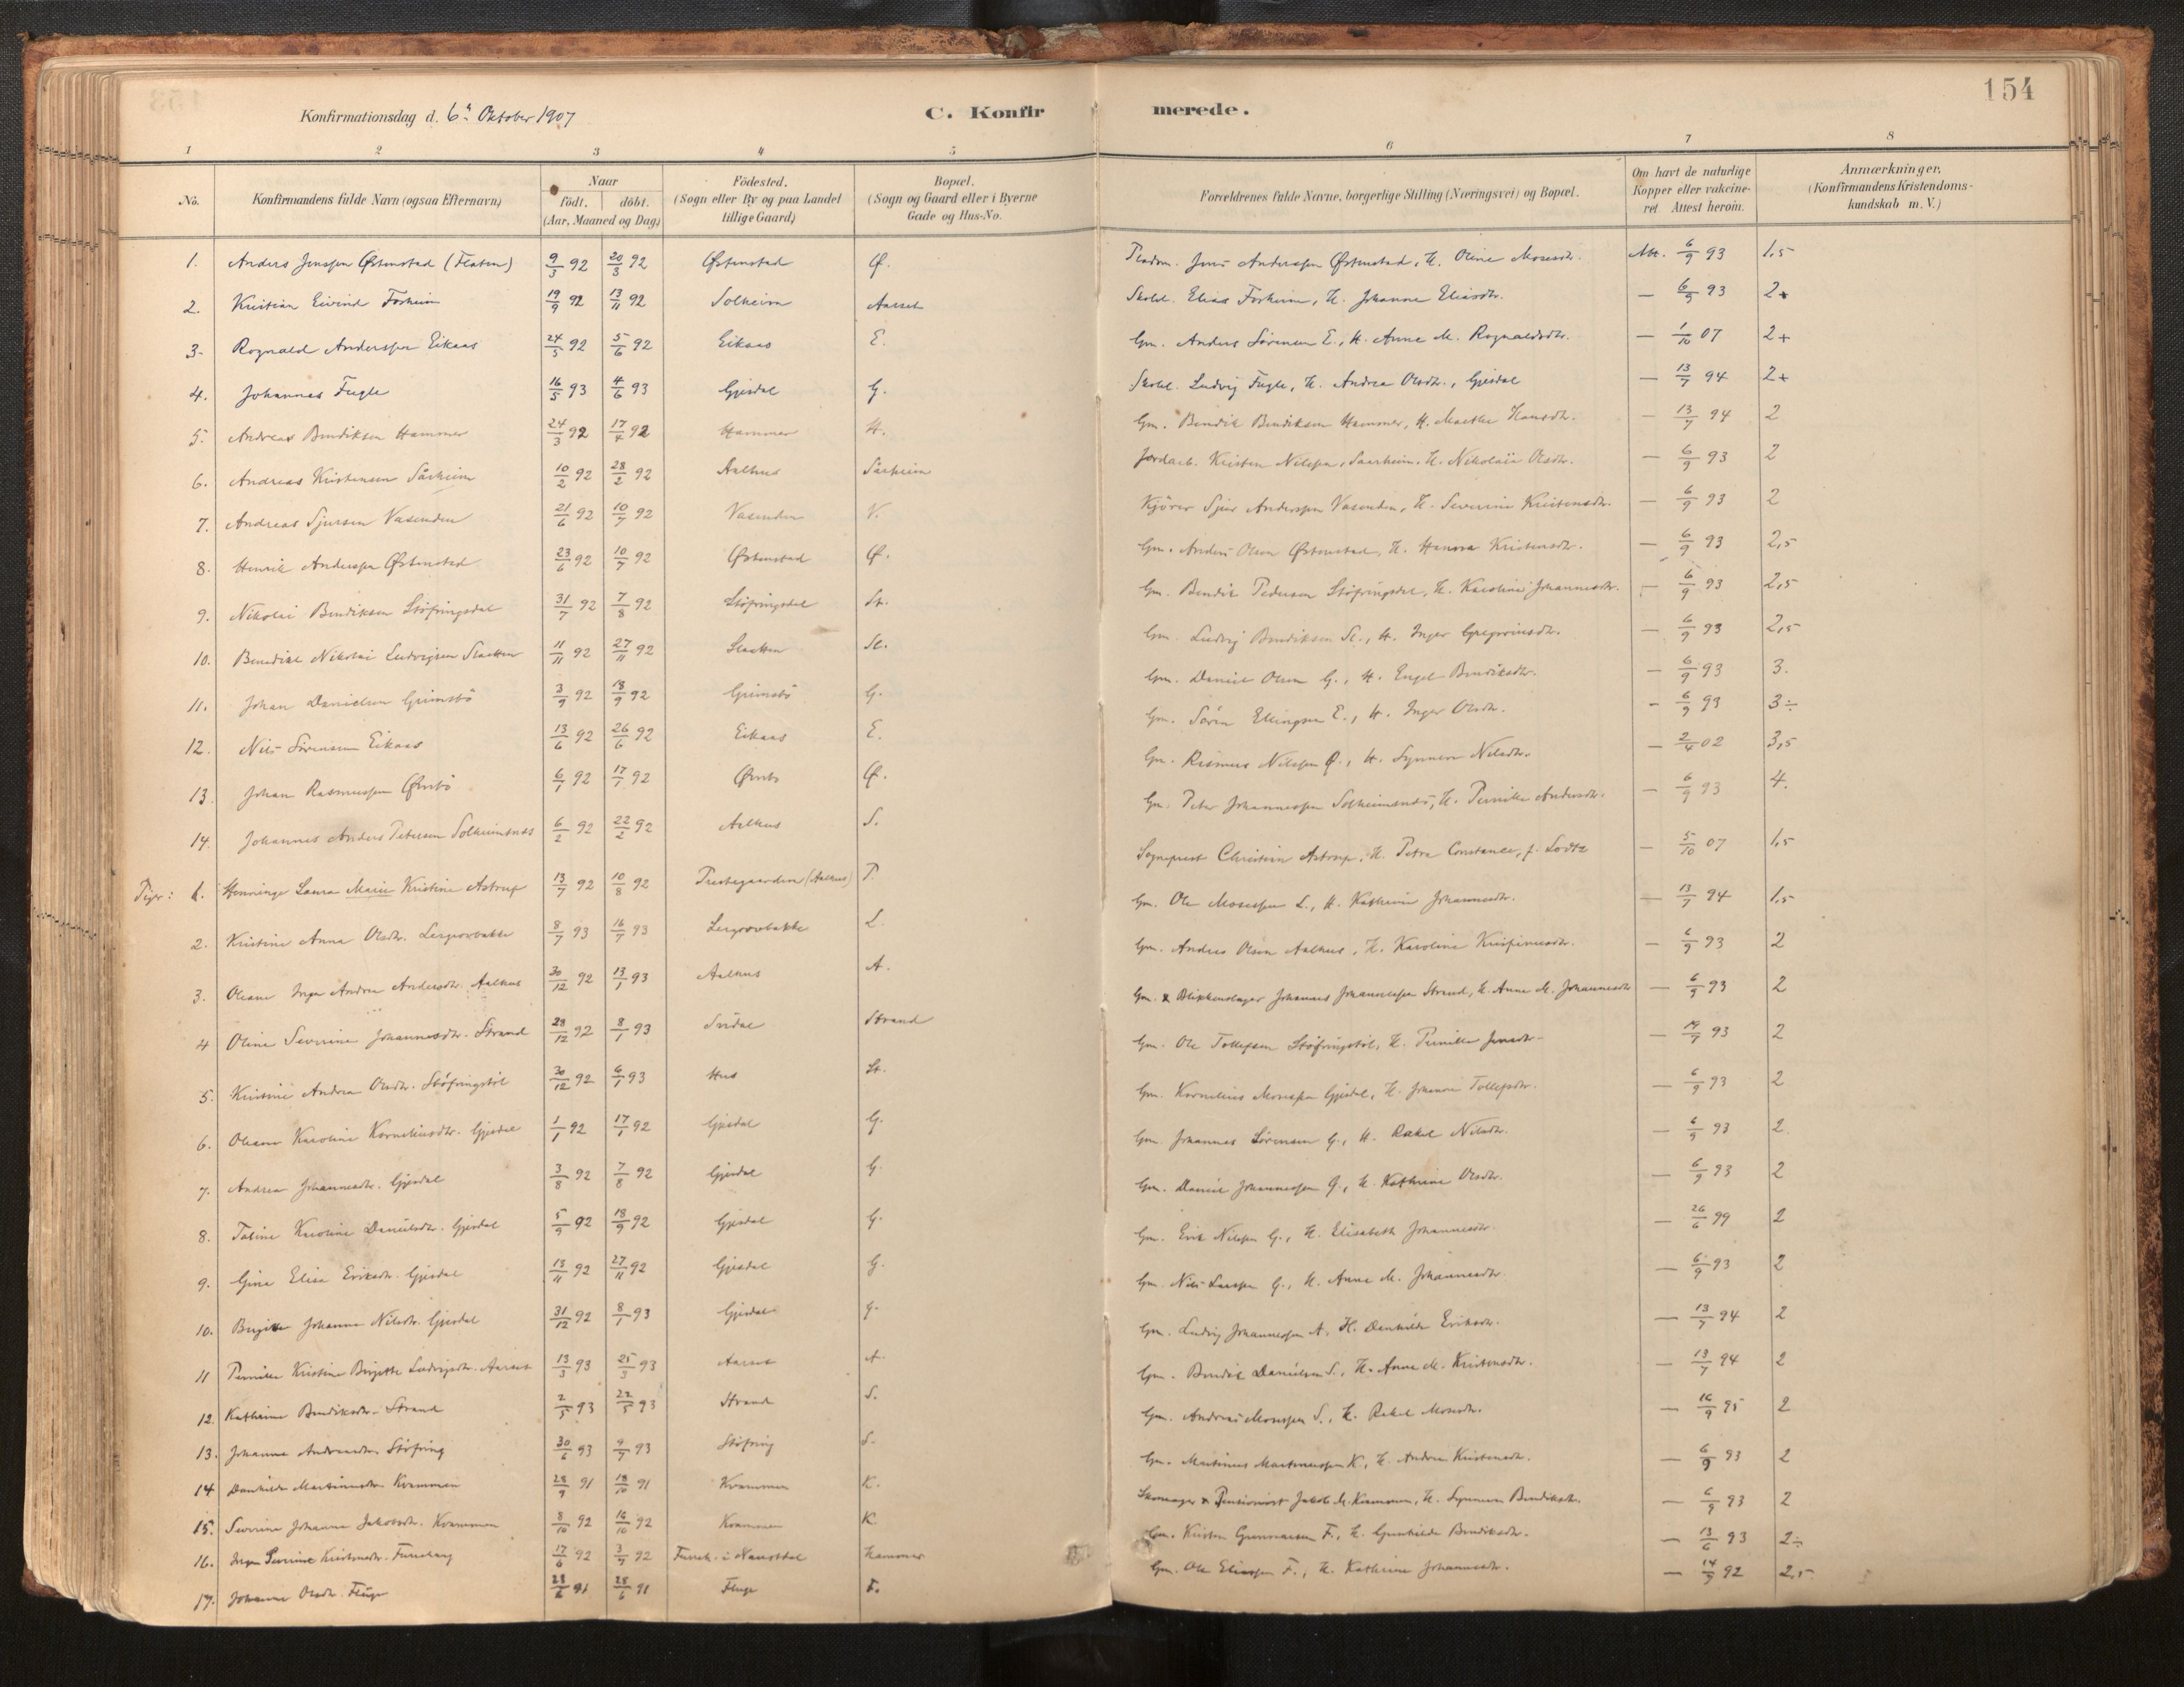 154
Konfirmationsdag d. 6te Oktober 1907
C. Konfirmerede.
1 2 3 4 5 6 7 8
No.
Konfirmandens fulde Navn (ogsaa Efternavn)
Naar födt. döbt. (Aar, Maaned og Dag)
Födested. (Sogn eller By og paa Landet tillige Gaard)
Bopæl. (Sogn og Gaard eller i Byerne Gade og Hus-No.
Forældrenes fulde Navne, borgerlige Stilling (Næringsvei) og Bopæl.
Om havt de naturlige Kopper eller vakcineret Attest herom.
Anmærkninger. (Konfirmandens Kristendomskundskab m. V.)
1. Anders Jensen Østenstad (Flaten) 9/3 92 20/3 92 Østenstad Ø. Jens Anderssen Østenstad, H. Oline Mosesdr. Att. 6/9 93 1,5
2. Kristian Eivind Forheim 19/9 92 13/11 92 Solheim Aarset Skoleh. Elias Forheim, H. Johanne Eliasdtr. — 6/9 93 2+
3. Rognald Anderssen Eikaas 24/5 92 5/6 92 Eikaas E. Gm. Anders Sørensen E., H. Anne M. Rognaldsdtr. — 1/10 07 2+
4. Johannes Fugle 16/5 93 4/6 93 Gjesdal G. Skoleh. Ludvig Fugle, H. Andrea Olsdtr., Gjesdal — 13/7 94 2+
5. Andreas Bendiksen Hammer 24/3 92 17/4 92 Hammer H. Gm. Bendik Bendiksen Hammer, H. Marthe Hansdtr. — 13/7 94 2
6. Andreas Kristensen Sårheim 10/2 92 28/2 92 Aalhus Sårheim Jordarb. Kristen Nilssen, Saarheim, H. Nikolaia Olsdtr. — 6/9 93 2
7. Andreas Sjursen Vasenden 21/6 92 10/7 92 Vasenden V. Kjörer Sjur Anderssen Vasenden, H. Severine Kristensdtr. — 6/9 93 2
8. Henrik Anderssen Østenstad 23/6 92 10/7 92 Østenstad Ø. Gm. Anders Olsen Østenstad, H. Hanna Kristensdtr. — 6/9 93 2,5
9. Nikolai Bendiksen Stöfringsdal 31/7 92 7/8 92 Stöfringsdal St. Gm. Bendik Pedersen Stöfringsdal, H. Karoline Johannesdtr. — 6/9 93 2,5
10. Benedikt Nikolai Ludvigsen Slatten 11/11 92 27/11 92 Slatten Sl. Gm. Ludvig Bendiksen Sl., H. Inger Gregoriusdtr. — 6/9 93 2,5
11. Johan Danielsen Grimsbö 3/9 92 18/9 92 Grimsbö G. Gm. Daniel Olsen G., H. Engel Bendiksdtr. — 6/9 93 3.
12. Nils Sörensen Eikaas 13/6 92 26/6 92 Eikaas E. Gm. Sören Ellingsen E., H. Inger Olsdtr. — 6/9 93 3÷
13. Johan Rasmussen Ørsbö 6/7 92 17/7 92 Ørsbö Ø. Gm. Rasmus Nilssen Ø., H. Synneva Nilsdtr. — 2/4 02 3,5
14. Johannes Anders Petersen Solheimsnes 6/2 92 22/2 92 Aalhus S. Gm. Peter Johannessen Solheimsnes, H. Pernille Andersdtr. — 6/9 93 4.
Piger: 1. Henninge Laura Marie Kristine Astrup 13/7 92 10/8 92 Prestegaarden (Aalhus) P. Sogneprest Christian Astrup, H. Petra Constance, f. Lodtz — 5/10 07 1,5
2. Kristine Anna Olsdtr. Lergrovbakke 8/7 93 16/7 93 Lergrovbakke L. Gm. Ole Mosessen L., H. Kathrine Johannesdtr. — 13/7 94 1,5
3. Oleane Inga Andrea Andersdtr. Aalhus 30/12 92 13/1 93 Aalhus A. Gm. Anders Olsen Aalhus, H. Karoline Krispinusdtr. — 6/9 93 2
4 Oline Severine Johannesdtr. Strand 28/12 92 8/1 93 Svidal Strand Gm. & Blikkenslager Johannes Johannessen Strand, H. Anne M. Johannesdtr — 6/9 93 2
5. Kristine Andrea Olsdtr. Stöfringstöl 30/12 92 6/1 93 Hus St. Gm. Ole Tollefsen Stöfringstöl, H. Pernille Jensdtr. — 14/7 93 2
6. Oleane Karoline Korneliusdtr. Gjesdal 1/1 92 17/1 92 Gjesdal G. Gm. Kornelius Monssen Gjesdal, H. Johanne Tollefsdtr. — 6/9 93 2
7. Andrea Johannesdtr. Gjesdal 3/8 92 7/8 92 Gjesdal G. Gm. Johannes Sörensen G., H. Rakel Nilsdtr. — 6/9 93 2.
8. Taline Karoline Danielsdtr. Gjesdal 5/9 92 18/9 92 Gjesdal G. Gm. Daniel Johannessen G., H. Kathrine Olsdtr. — 6/9 93 2
9. Gina Elisa Eriksdtr. Gjesdal 13/11 92 27/11 92 Gjesdal G. Gm. Erik Nilssen G., H. Elisabeth Johannesdtr. — 26/6 99 2
10. Birgitte Johanne Nilsdtr. Gjesdal 31/12 92 8/1 93 Gjesdal G. Gm. Nils Larssen G., H. Anne M. Johannesdtr. — 6/9 93 2
11 Pernille Kristine Birgitte Ludvigsdtr. Aarset 13/3 93 25/3 93 Aarset A. Gm. Ludvig Johannessen A., H. Danhilde Eriksdtr. — 13/7 94 2
12. Kathrine Bendiksdtr. Strand 2/5 93 22/5 93 Strand S. Gm. Bendik Danielsen S., H. Anne M. Kristensdtr. — 13/7 94 2
13. Johanne Andreasdtr. Stöfring 30/6 93 9/7 93 Stöfring S. Gm. Andreas Monssen S., H. Rakel Monsdtr. — 16/9 95 2
14 Danhilde Martinusdtr. Kvammen 28/9 91 18/10 91 Kvammen K. Gm. Martinus Martinussen K., H. Andrea Kristensdtr. — 6/9 93 2
15. Severine Johanne Jakobsdtr. Kvammen 8/10 92 16/10 92 Kvammen K. Skomager & Pensionist Jakob M. Kvammen, H. Synneva Bendiksdtr. — 6/9 93 2
16. Inga Severine Kristensdtr. Furehaug 17/6 92 3/7 92 Fureh. i Naustdal Hammer Gm. Kristen Gunnarsen F., H. Gunhilde Bendiksdtr. — 13/6 93 2÷
17. Johanne Olsdtr. Fluge 28/6 91 28/6 91 Fluge F. Gm. Ole Eliassen F., H. Kathrine Johannesdtr. — 14/7 92 2,5